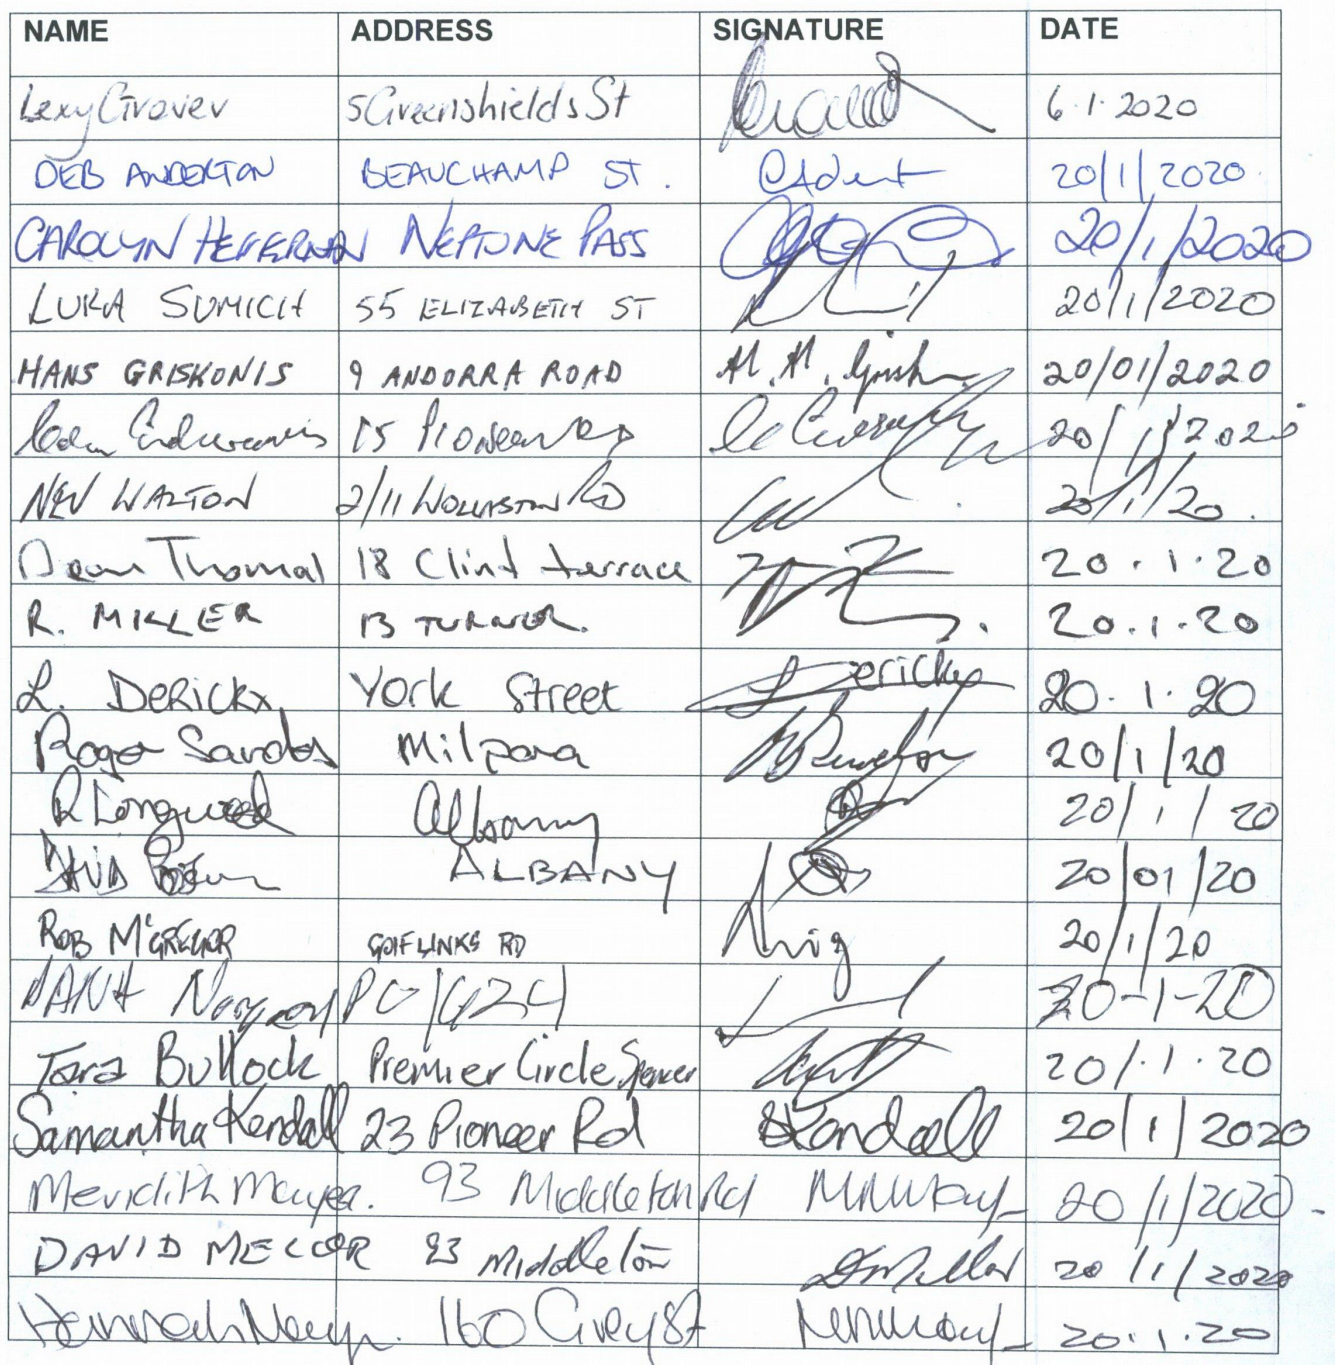 NAME ADDRESS SIGNATURE DATE
Lexy Grover 5 Greenshields St 6.1.2020
DEB ANDERTON BEAUCHAMP ST. 20/1/2020.
CAROLYN HEFFERNAN NEPTUNE PASS 20/1/2020
LUKA SUMICH 55 ELIZABETH ST 20/1/2020
HANS GRISKONIS 9 ANDORRA ROAD H. H. 20/01/2020
15 Pioneer Rd 20/1/2020
NEV WALTON 2/11 WOLLASTON RD 20/1/20.
Dean Thomas 18 Clint terrace 20.1.20
R. MILLER 13 TURNER. 20.1.20
L. DERickx York Street L Derickx 20.1.20
Roger Sandos Milpara 20/1/20
R Longwood Albany 20/1/20
DAVID ALBANY 20/01/20
ROB McGREGOR GOLF LINKS RD 20/1/20
20-1-20
Tara Bullock Premier Circle, Spencer 20/.1.20
Samantha Kendall 23 Pioneer Rd SKendall 20/1/2020
Meridith 93 Middleton Rd 20/1/2020-
DAVID MELLOR 93 Middleton DMellor 20/1/2020
Hannah 160 Grey St 20.1.20